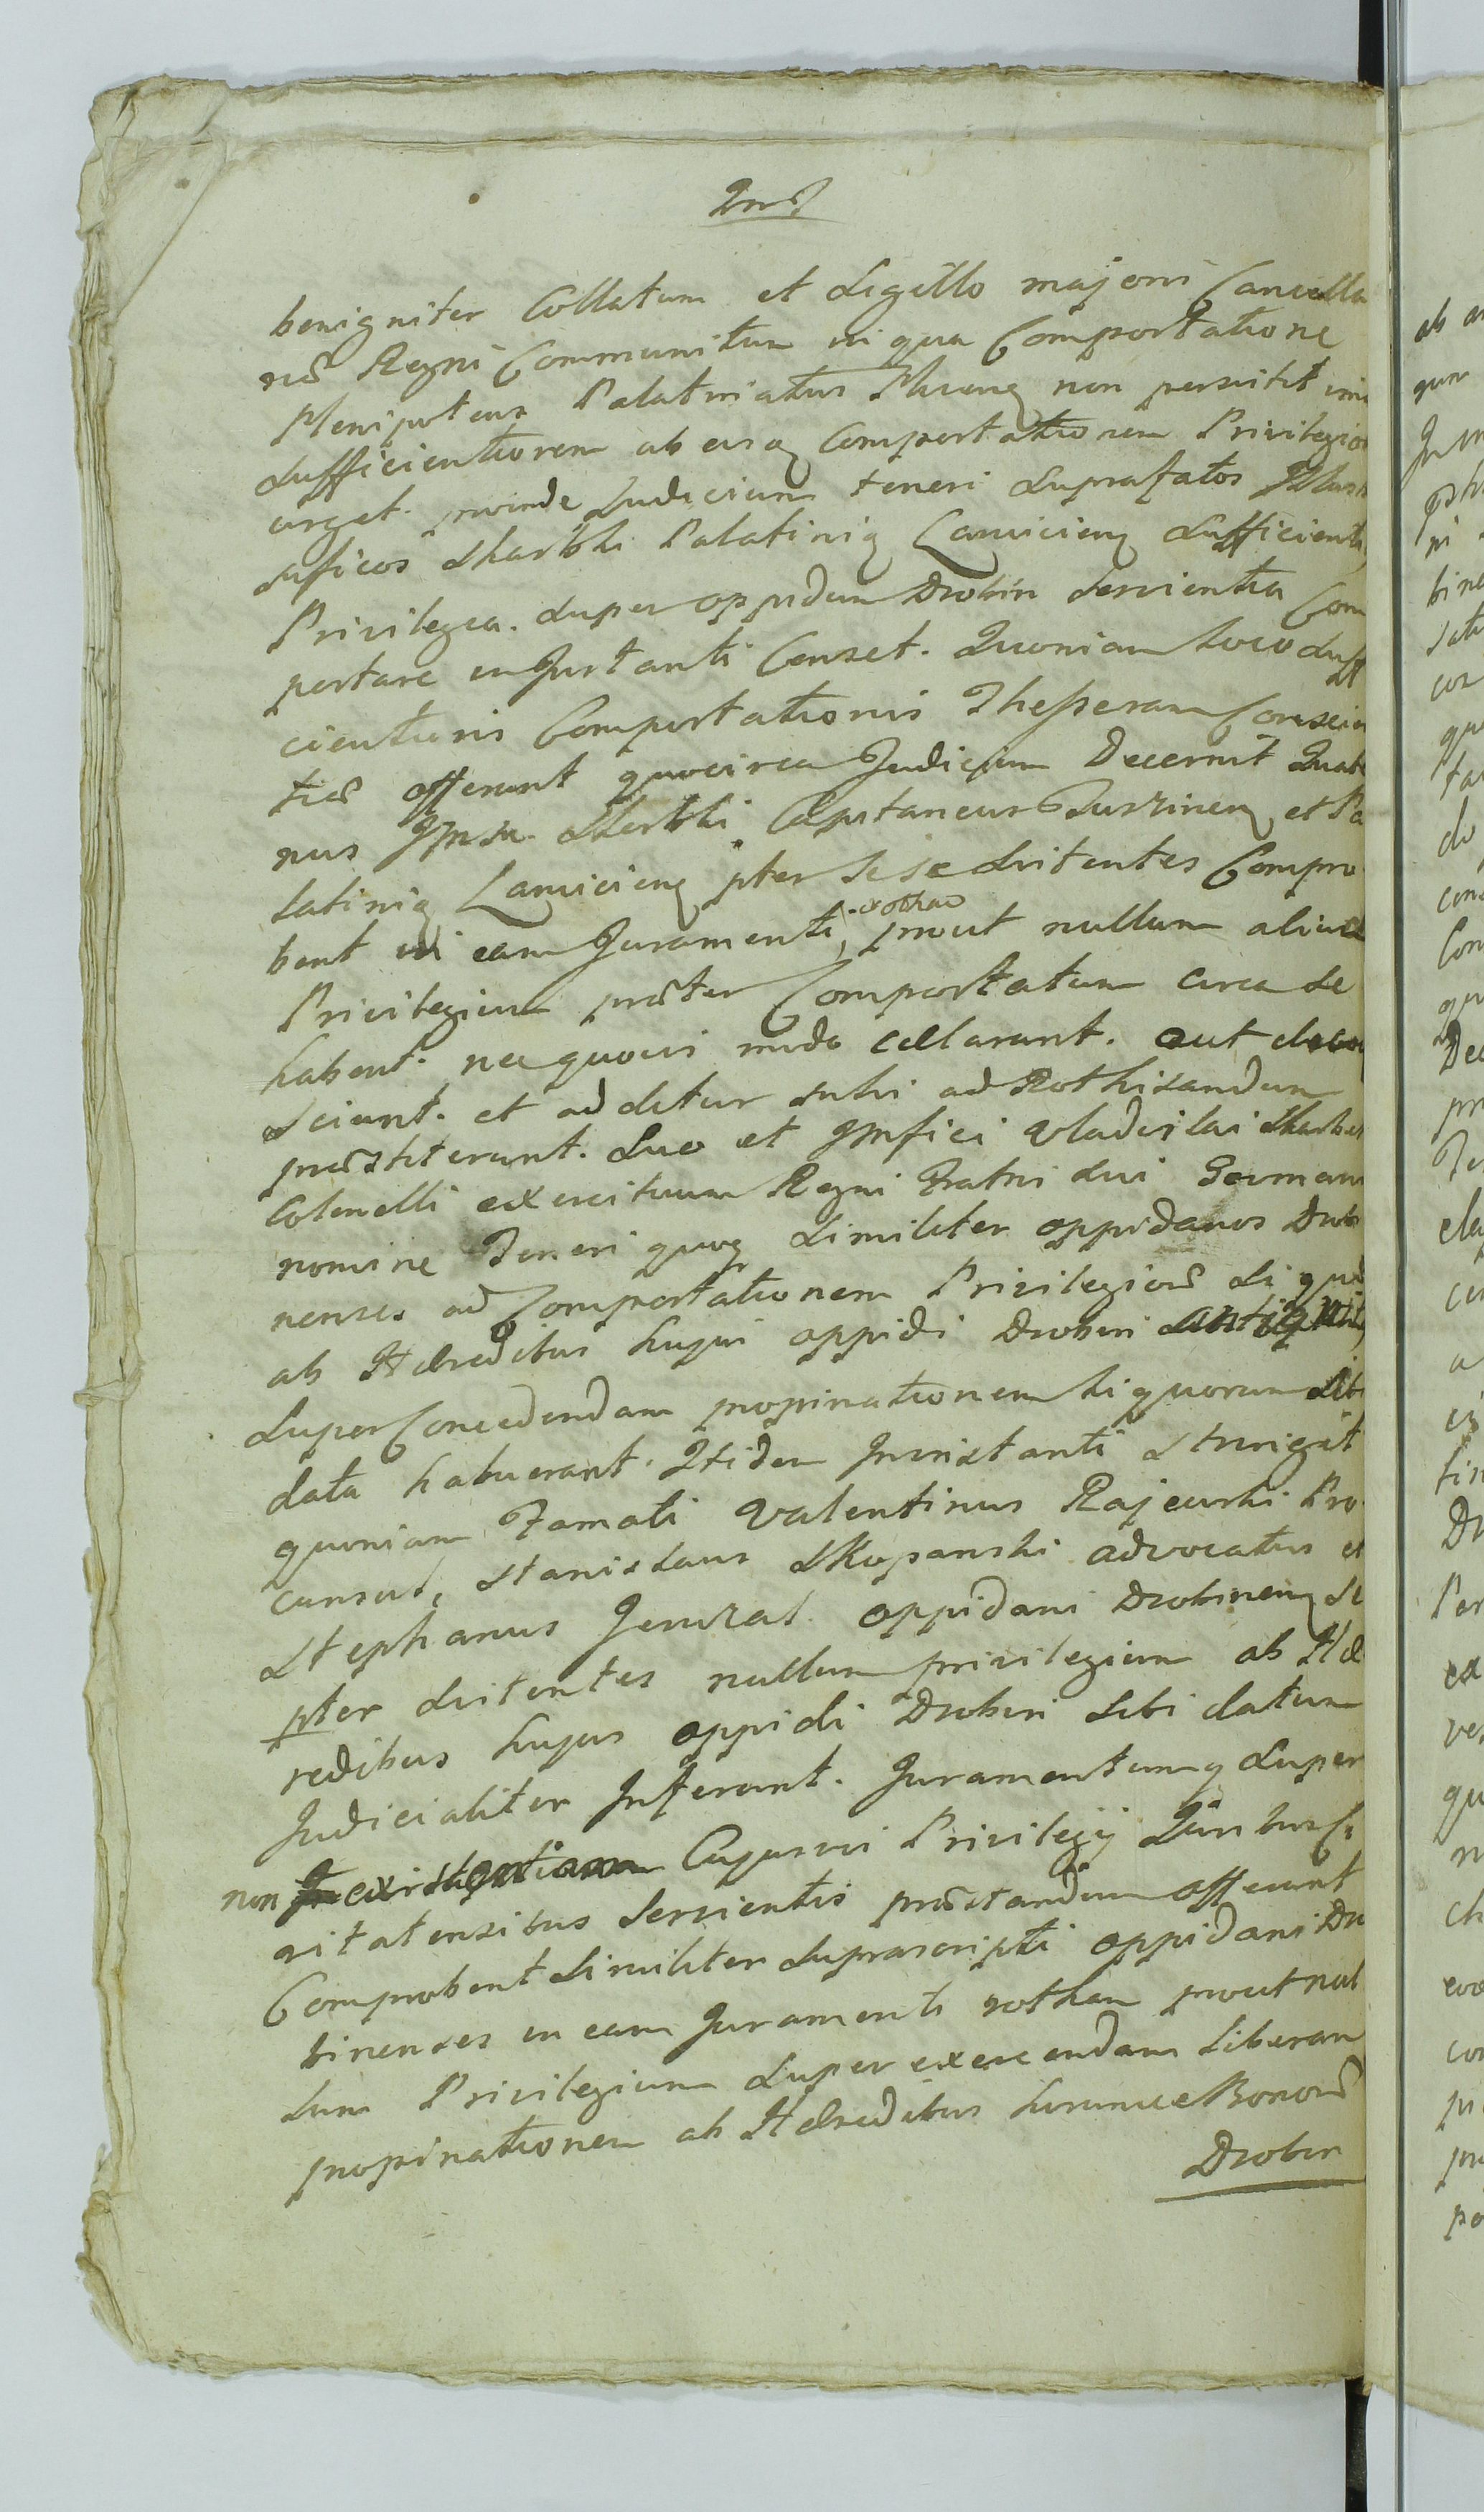 benigniter Collatum et Sigillo majori Cancella
riæ Regni Communitum in qua Comportatione
Plenipotens Palatinatus Plocen non persistit imo
Sufficientiorem ab eisq Comportationem Privilegior
urget. proinde Judicium teneri Suprafatos
Skarbki Palatiniq Lanicienq Sufficientia
Privilegia. Super oppidum Drobin Servientia Com
portare injunt anti Censet. Quoniam loco Suff
cientioris Comportationis Thesseram Conscien
tiæ offerunt quocirca Judicium Decernit Quate
nus Skarbki Capitaneus et Pa
latiniq Lanicienq pter Se se Sistentes Compro
bent in eam Juramenti, rotham prout nullum aliud
Privilegium præter Comportatum circa se
habent. nec quovis modo cellarunt. aut
Sciunt. et additur suhi ad Rothisandum
præstiterunt. Suo et Mnfici Vladislai Skarbek
Colonelli exercituum Regni Fratris Sui Germani
nomine Teneri quoq Similiter oppidanos Drobi
nenses ad Comportationem Privilegiorũ Si quæ
ab Hæredibus hujus oppidi Drobin antiquitus
Super Concedendam propinationem liquorum Sibi
data habuerant. Itidem Instanti
quoniam Famati Valentinus Rajewski Pro
cunsul, Stanislaus Skopanski advocatus et
Stephanus Jenrzal. oppidani Drobinenq Se
pter Sistentes nullum privilegium ab Hæ
redibus hujus oppidi Drobin Sibi datum
Judicialiter Inferunt. Juramentumq Super
non existentiam Cujusvis Privilegij Juribus Ci
vitatensibus Servientis præstandum offerunt
Comprobent Similiter Suprascripti oppidani Dro
binenses in eam Juramenti rotham prout nul
lum Privilegium Super exercendam liberam
propinationem ab Hæredibus horumce Bonorũ
Drobin